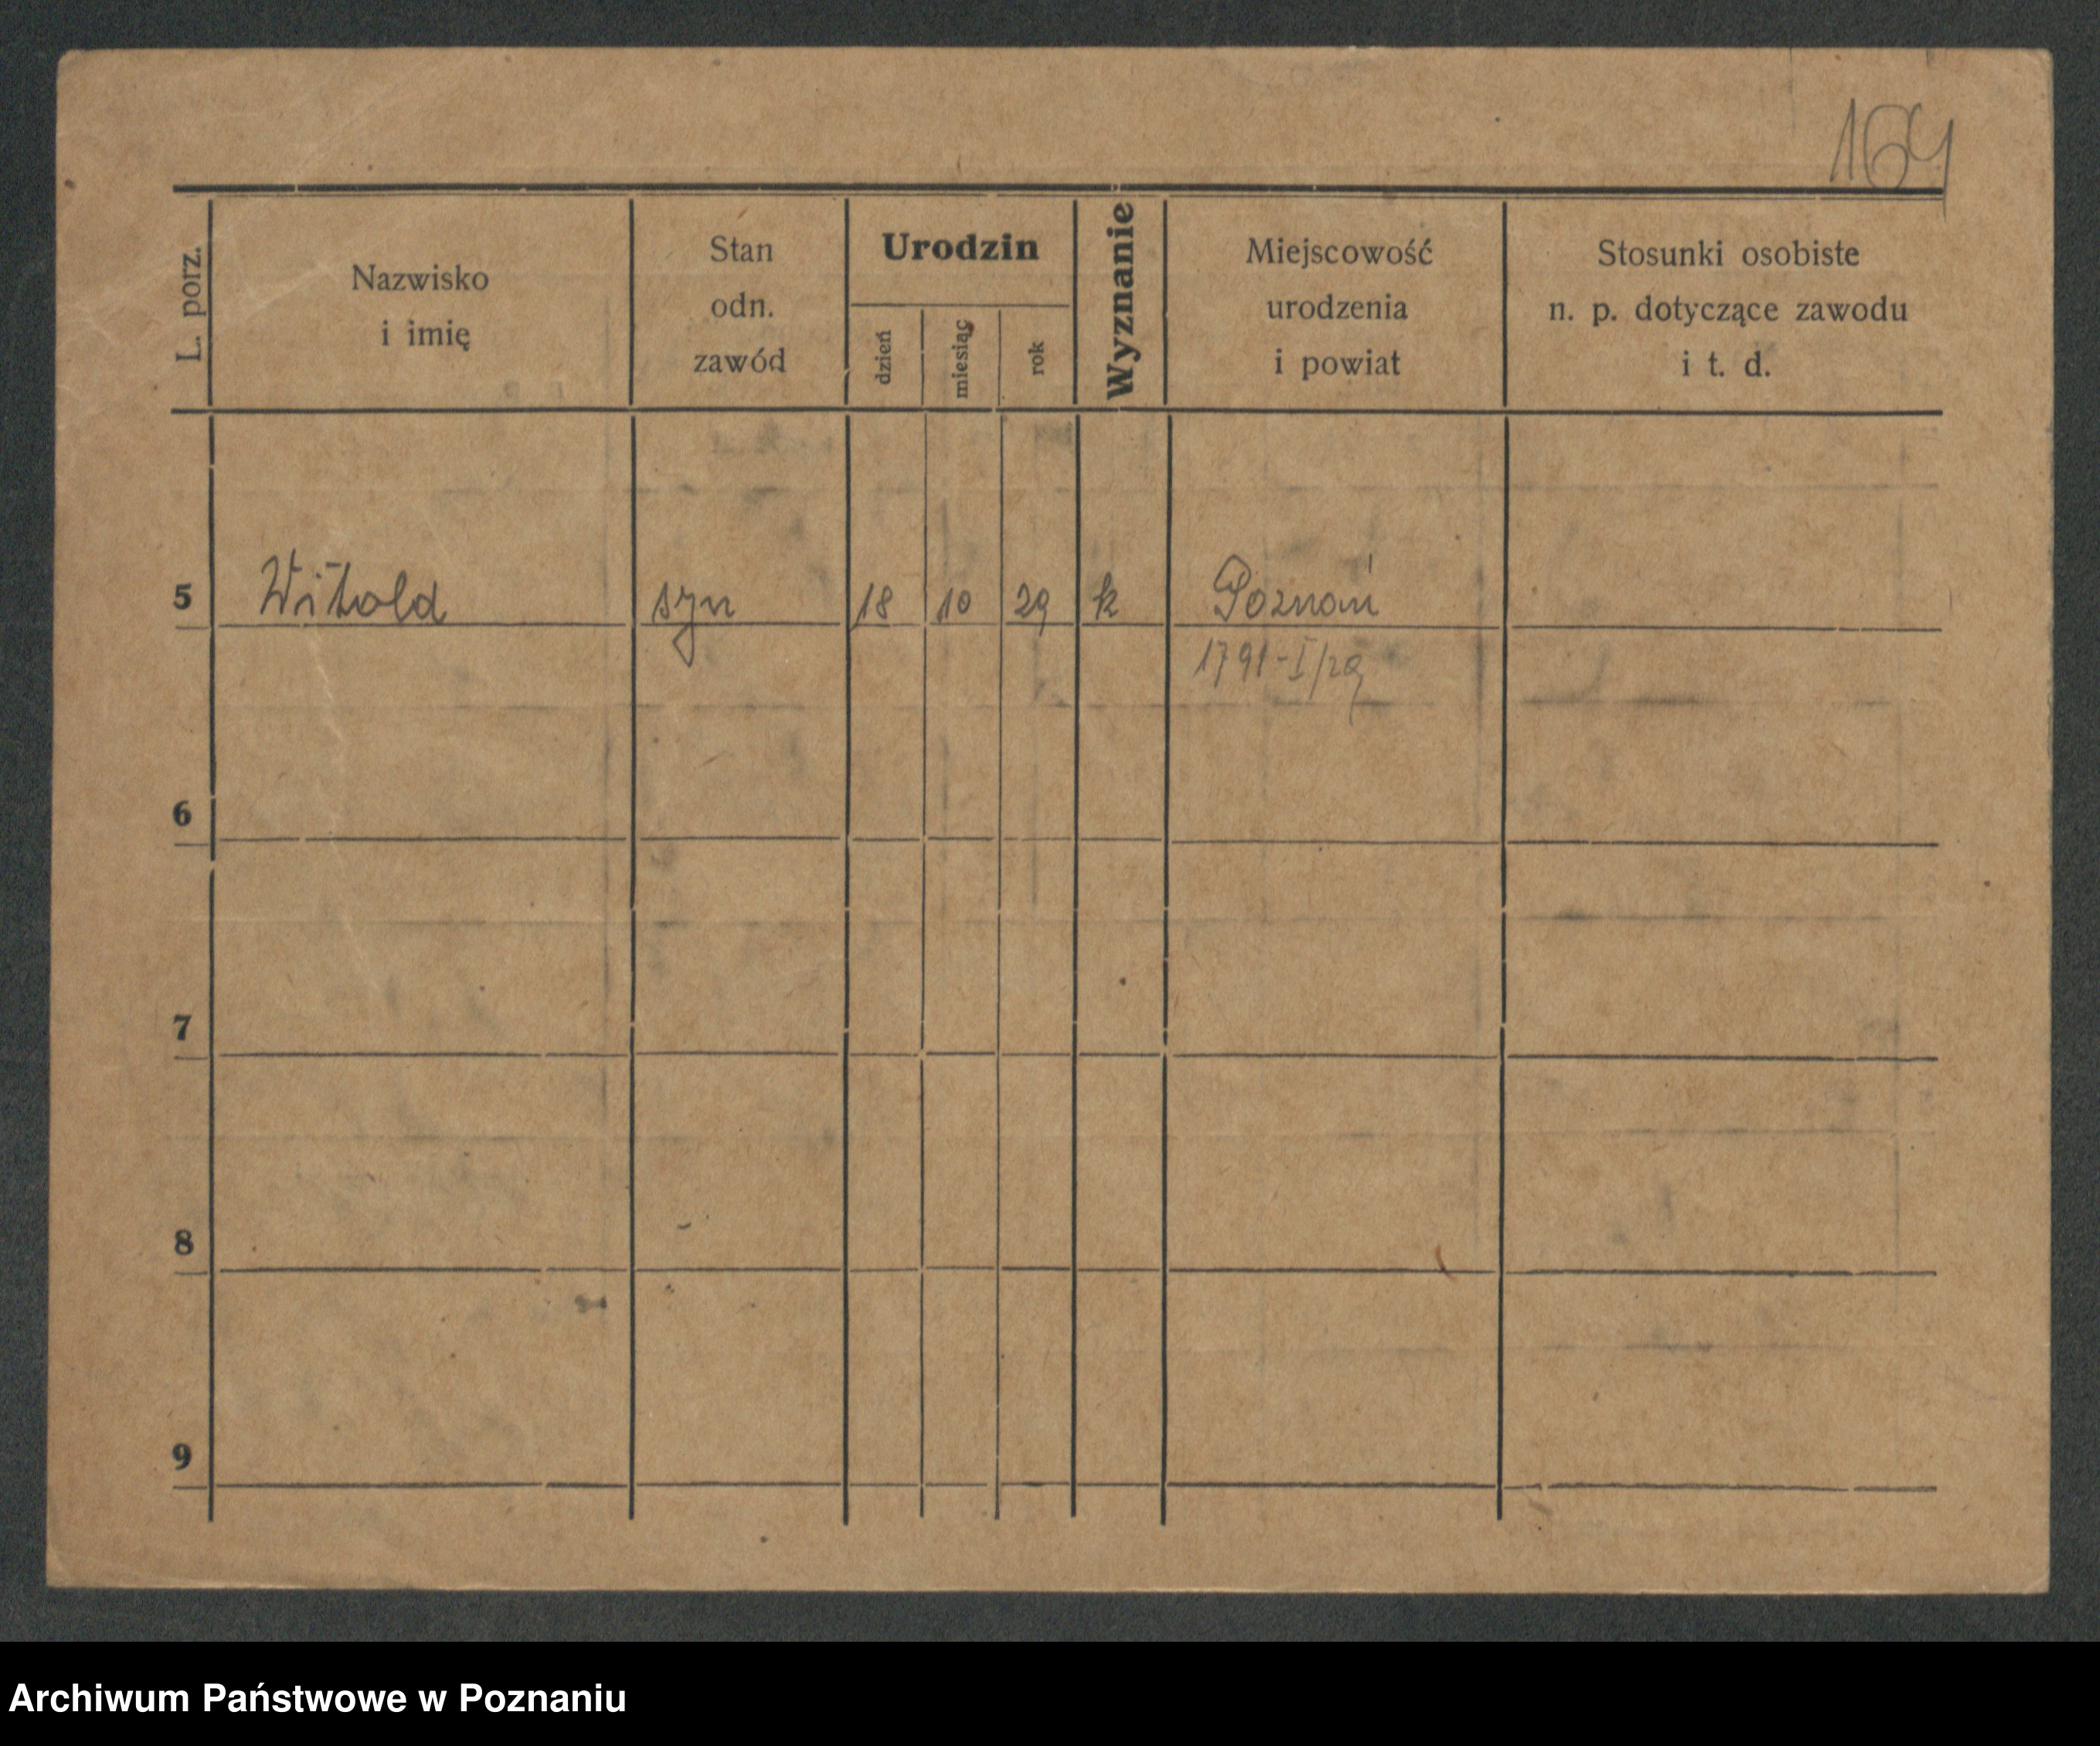 164
L. porz.
Nazwisko
i imię
Stan
odn.
zawód
Urodzin
dzień
miesiąc
rok
Wyznanie
Miejscowość
urodzenia
i powiat
Stosunki osobiste
n. p. dotyczące zawodu
i t. d.
5 Witold syn 18 10 29 k Poznań
1791-I/29
6
7
8
9
Archiwum Państwowe w Poznaniu